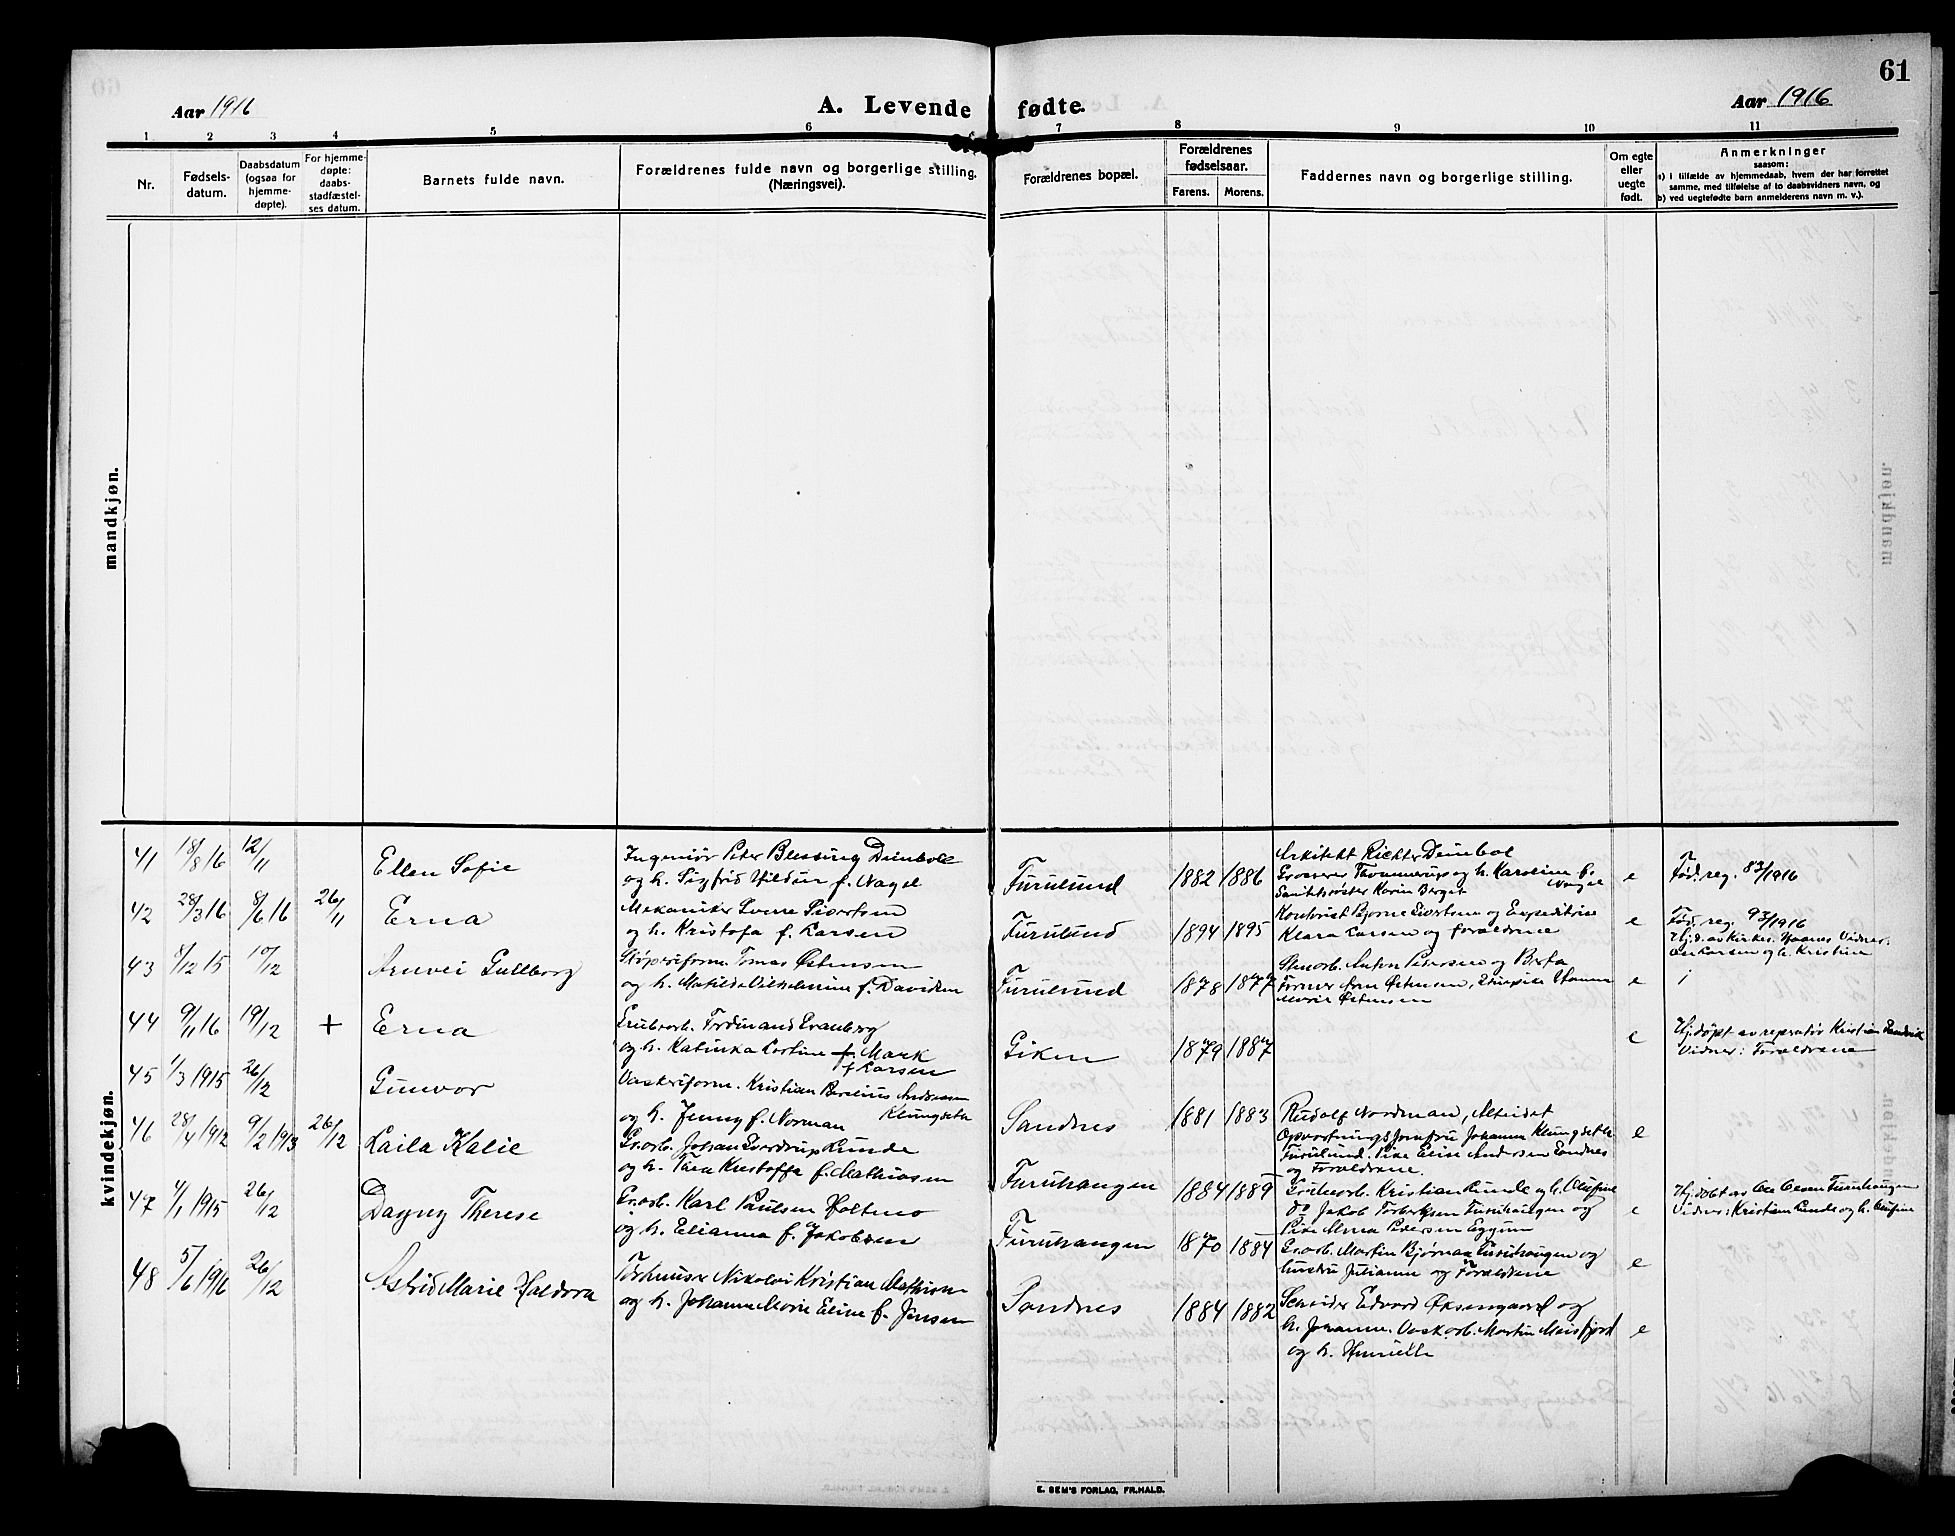 61
Aar 1916
A. Levende fødte.
Aar 1916
1 2 3 4 5 6 7 8 9 10 11
Nr.
Fødsels-
datum.
Daabsdatum
(ogsaa for
hjemme-
døpte).
For hjemme-
døpte:
daabs-
stadfæstel-
ses datum.
Barnets fulde navn.
Forældrenes fulde navn og borgerlige stilling.
(Næringsvei).
Forældrenes bopæl.
Forældrenes
fødselsaar.
Farens. Morens.
Faddernes navn og borgerlige stilling.
Om egte
eller
uegte
født.
Anmerkninger
saasom:
a) i tilfælde av hjemmedaab, hvem der har forrettet
samme, med tilføielse af to daabsvidners navn, og
b) ved uegtefødte barn anmelderens navn m. v.).
mandkjøn.
kvindekjøn.
41 18/8 16 12/11 Ellen Sofie
Ingeniør Peter Blessing Deinboll
og h. Sigfrid Hildur f. Nagel
Furulund 1882 1886
Arkitekt Richter Deinbol
Grosserer Thommerup og h. Karoline f.
Nagel
Karin Berget
e
Fød. reg. 83/1916
42 28/3 16 8/6 16 26/11 Erna
Mekaniker Sverre Sivertsen
og h. Kristofa f. Larsen
Furulund 1894 1895
Kontorist Bjarne Sivertsen og Expeditrise
Klara Larsen og forældrene
e
Fød. reg. 93/1916
Hj.d. av Kirkes. Vidner:
Larsen og h. Kristine
43 8/12 15 10/12 Arnvei Gullborg
Støperiform. Tomas Østensen
og h. Matilde Vilhelmine f. Davidsen
Furulund 1878 1877
Stenarb. Anton Petersen og Berta
Former Arne Østensen,
Marie Østensen
e
44 9/11 16 19/12 + Erna
Grubearb. Ferdinand Svanberg
og h. Katinka f. Mark
f. Larsen
Giken 1879 1887
e
Hj.døpt av reparatør Kristian
Vidner: Forældrene
45 1/3 1915 26/12 Gunvor
Vaskeriform. Kristian Andersen
Klungseth
og h. Jenny f. Norman
Sandnes 1881 1883
Rudolf Nordman,
Opvartningsjomfru Johanna Klungseth
Furulund. Pike Elise Andersen Sandnes
og Forældrene.
e
46 28/4 1912 9/2 1913 26/12 Laila Kalie
Gr.arb. Johan Sverdrup Runde
og h. Thea Kristoffa f. Mathiasen
Furuhaugen 1884 1889
Grubearb. Kristian Runde og h. Olufine
Jakob Torbergsen Furuhaugen og
Pike Anna Pedersen Eggum
e
Hj.døbt av Ole Olsen Furuhaugen
Vidner: Kristian Runde og h. Olufine
47 4/1 1915 26/12 Dagny Therese
Gr.arb. Karl Paulsen Holtmo
og h. Elianna f. Jakobsen
Furuhaugen 1870 1884
Gr.arb. Martin Bjørnaa Furuhaugen og
hustru Julianne og Forældrene
e
48 5/6 1916 26/12 Astrid Marie Haldora
Nikolai Kristian Mathisen
og h. Johanne Marie Eline f. Jensen
Sandnes 1884 1882
Edvard Øksengaard og
h. Johanne. Vask.arb. Martin Meisfjord
og h.
e
E. SEM'S FORLAG, FR.HALD.